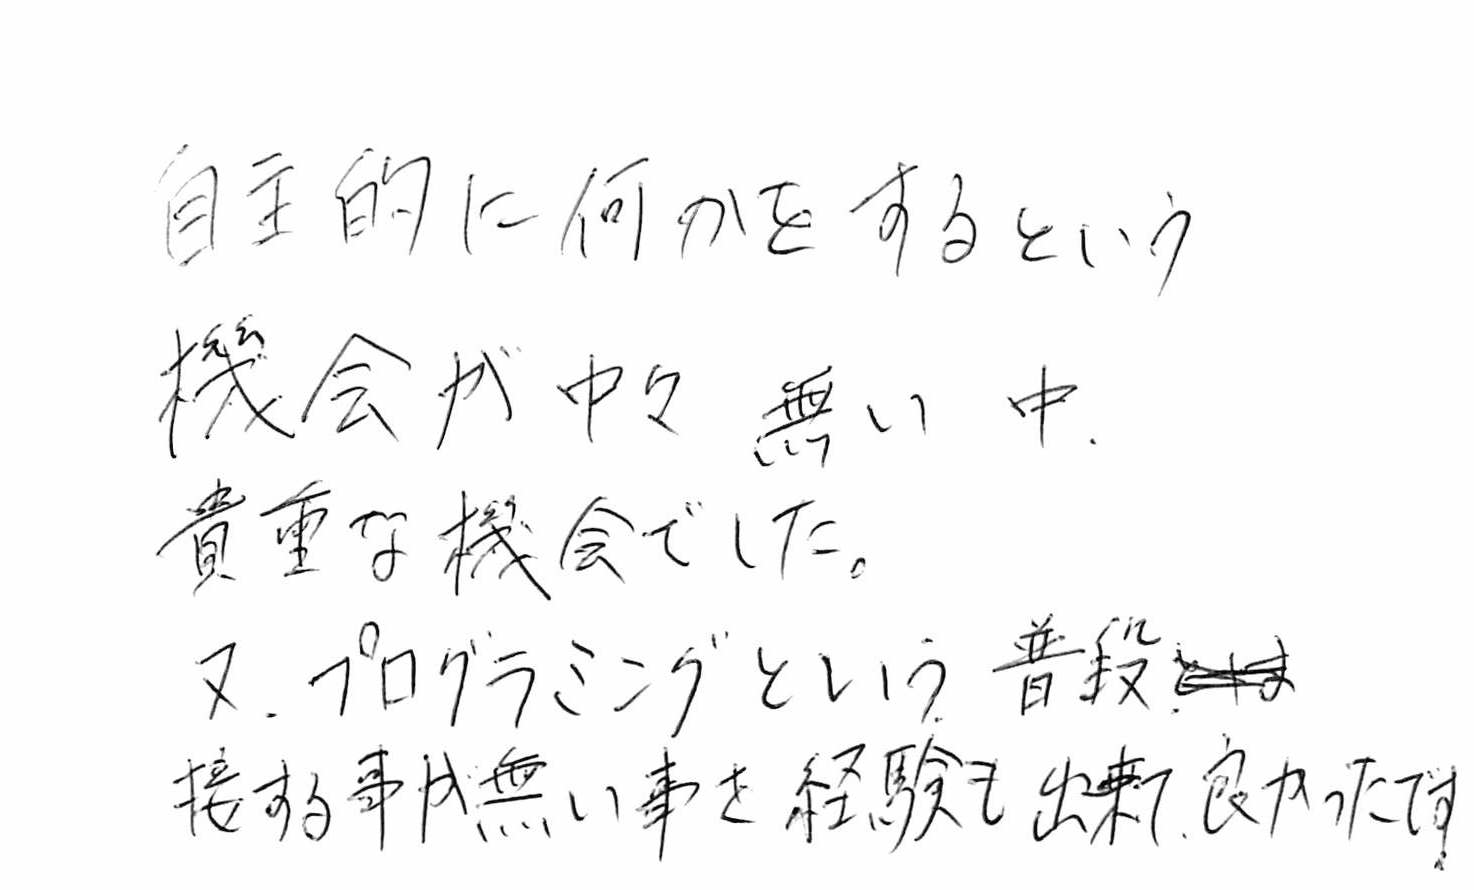 自主的に何かをするという
機会が中々無い中、
貴重な機会でした。
又、プログラミングという、普段
接する事が無い事を経験も出来て、良かったです。